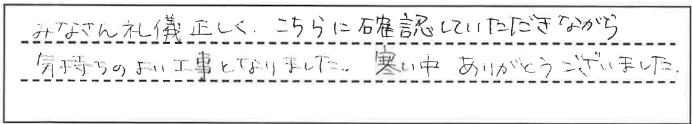 みなさん礼儀正しく、こちらに確認していただきながら
気持ちのよい工事となりました。寒い中 ありがとうございました。